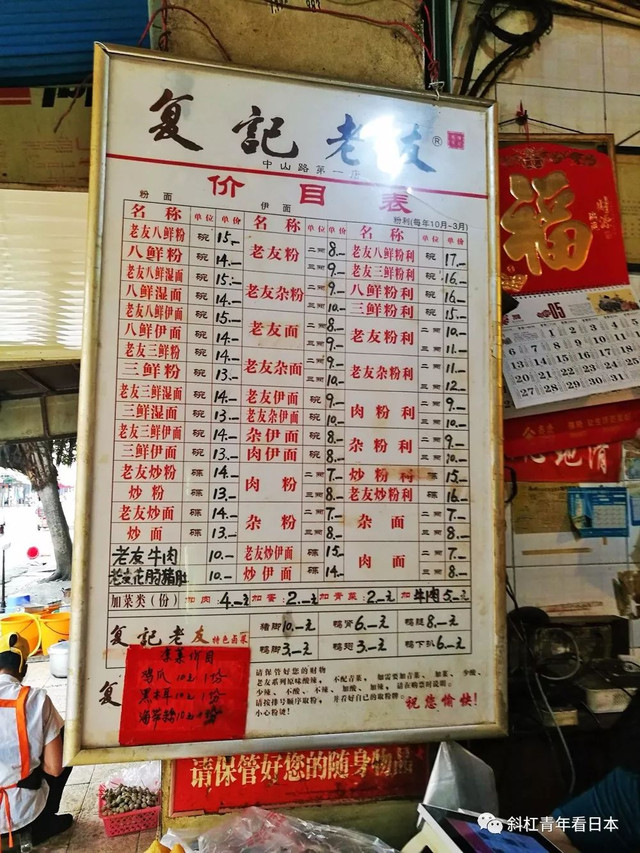 复記老友®
中山路第一店
价目表
粉面
伊面
粉利(每年10月-3月)
名称 单位 单价 名称 单位 单价 名称 单位 单价
老友八鲜粉 碗 15.-
八鲜粉 碗 14.-
老友八鲜湿面 碗 15.-
八鲜湿面 碗 14.-
老友八鲜伊面 碗 15.-
八鲜伊面 碗 14.-
老友三鲜粉 碗 14.-
三鲜粉 碗 13.-
老友三鲜湿面 碗 14.-
三鲜湿面 碗 13.-
老友三鲜伊面 碗 14.-
三鲜伊面 碗 13.-
老友炒粉 碟 14.-
炒粉 碟 13.-
老友炒面 碟 14.-
炒面 碟 13.-
老友牛肉 10.-
老友花肠猪肚 10.-
老友粉 二两 8.- 三两 9.-
老友杂粉 二两 9.- 三两 10.-
老友面 二两 8.- 三两 9.-
老友杂面 二两 9.- 三两 10.-
老友伊面 碗 9.-
老友杂伊面 碗 10.-
杂伊面 碗 8.-
肉伊面 碗 8.-
肉粉 二两 7.- 三两 8.-
杂粉 二两 7.- 三两 8.-
老友炒伊面 碟 15.-
炒伊面 碟 14.-
老友八鲜粉利 碗 17.-
老友三鲜粉利 碗 16.-
八鲜粉利 碗 16.-
三鲜粉利 碗 15.-
老友粉利 二两 10.- 三两 11.-
老友杂粉利 二两 11.- 三两 12.-
肉粉利 二两 9.- 三两 10.-
杂粉利 二两 9.- 三两 10.-
炒粉利 碟 15.-
老友炒粉利 碟 16.-
杂面 二两 7.- 三两 8.-
肉面 二两 7.- 三两 8.-
加菜类(份) 加肉:4.-元 加蛋:2.-元 加青菜:2.-元 加牛肉5.-元
复記老友 特色卤菜
猪脚10.-元 鸭肾6.-元 鸭腿8.-元
鸭脚3.-元 鸭翅3.-元 鸭下扒6.-元
复
凉菜价目
鸡爪 10元 1份
黑木耳 10元 1份
请保管好您的财物
老友系列原味酸辣, 不配青菜, 如需要加青菜、加菜、少酸、
少辣、不酸、不辣、加酸、加辣, 请在购票时说明。
请按排号顺序取粉, 并看好自己的取粉牌。
小心粉烫!
祝您愉快!
请保管好您的随身物品
福
05
斜杠青年看日本